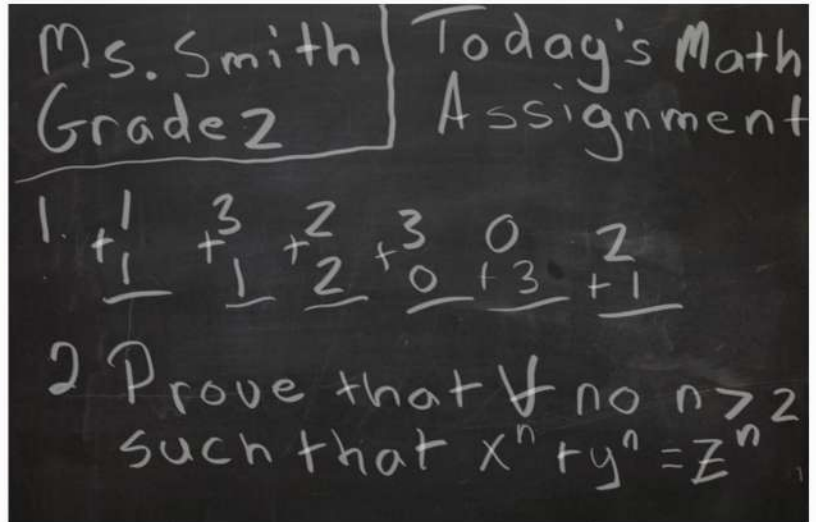 Ms. Smith
Grade 2
Today's Math
Assignment
1. 1 3 2 3 0 2
+1 +1 +2 +0 +3 +1
2 Prove that ∀ no n > 2
such that xⁿ + yⁿ = zⁿ